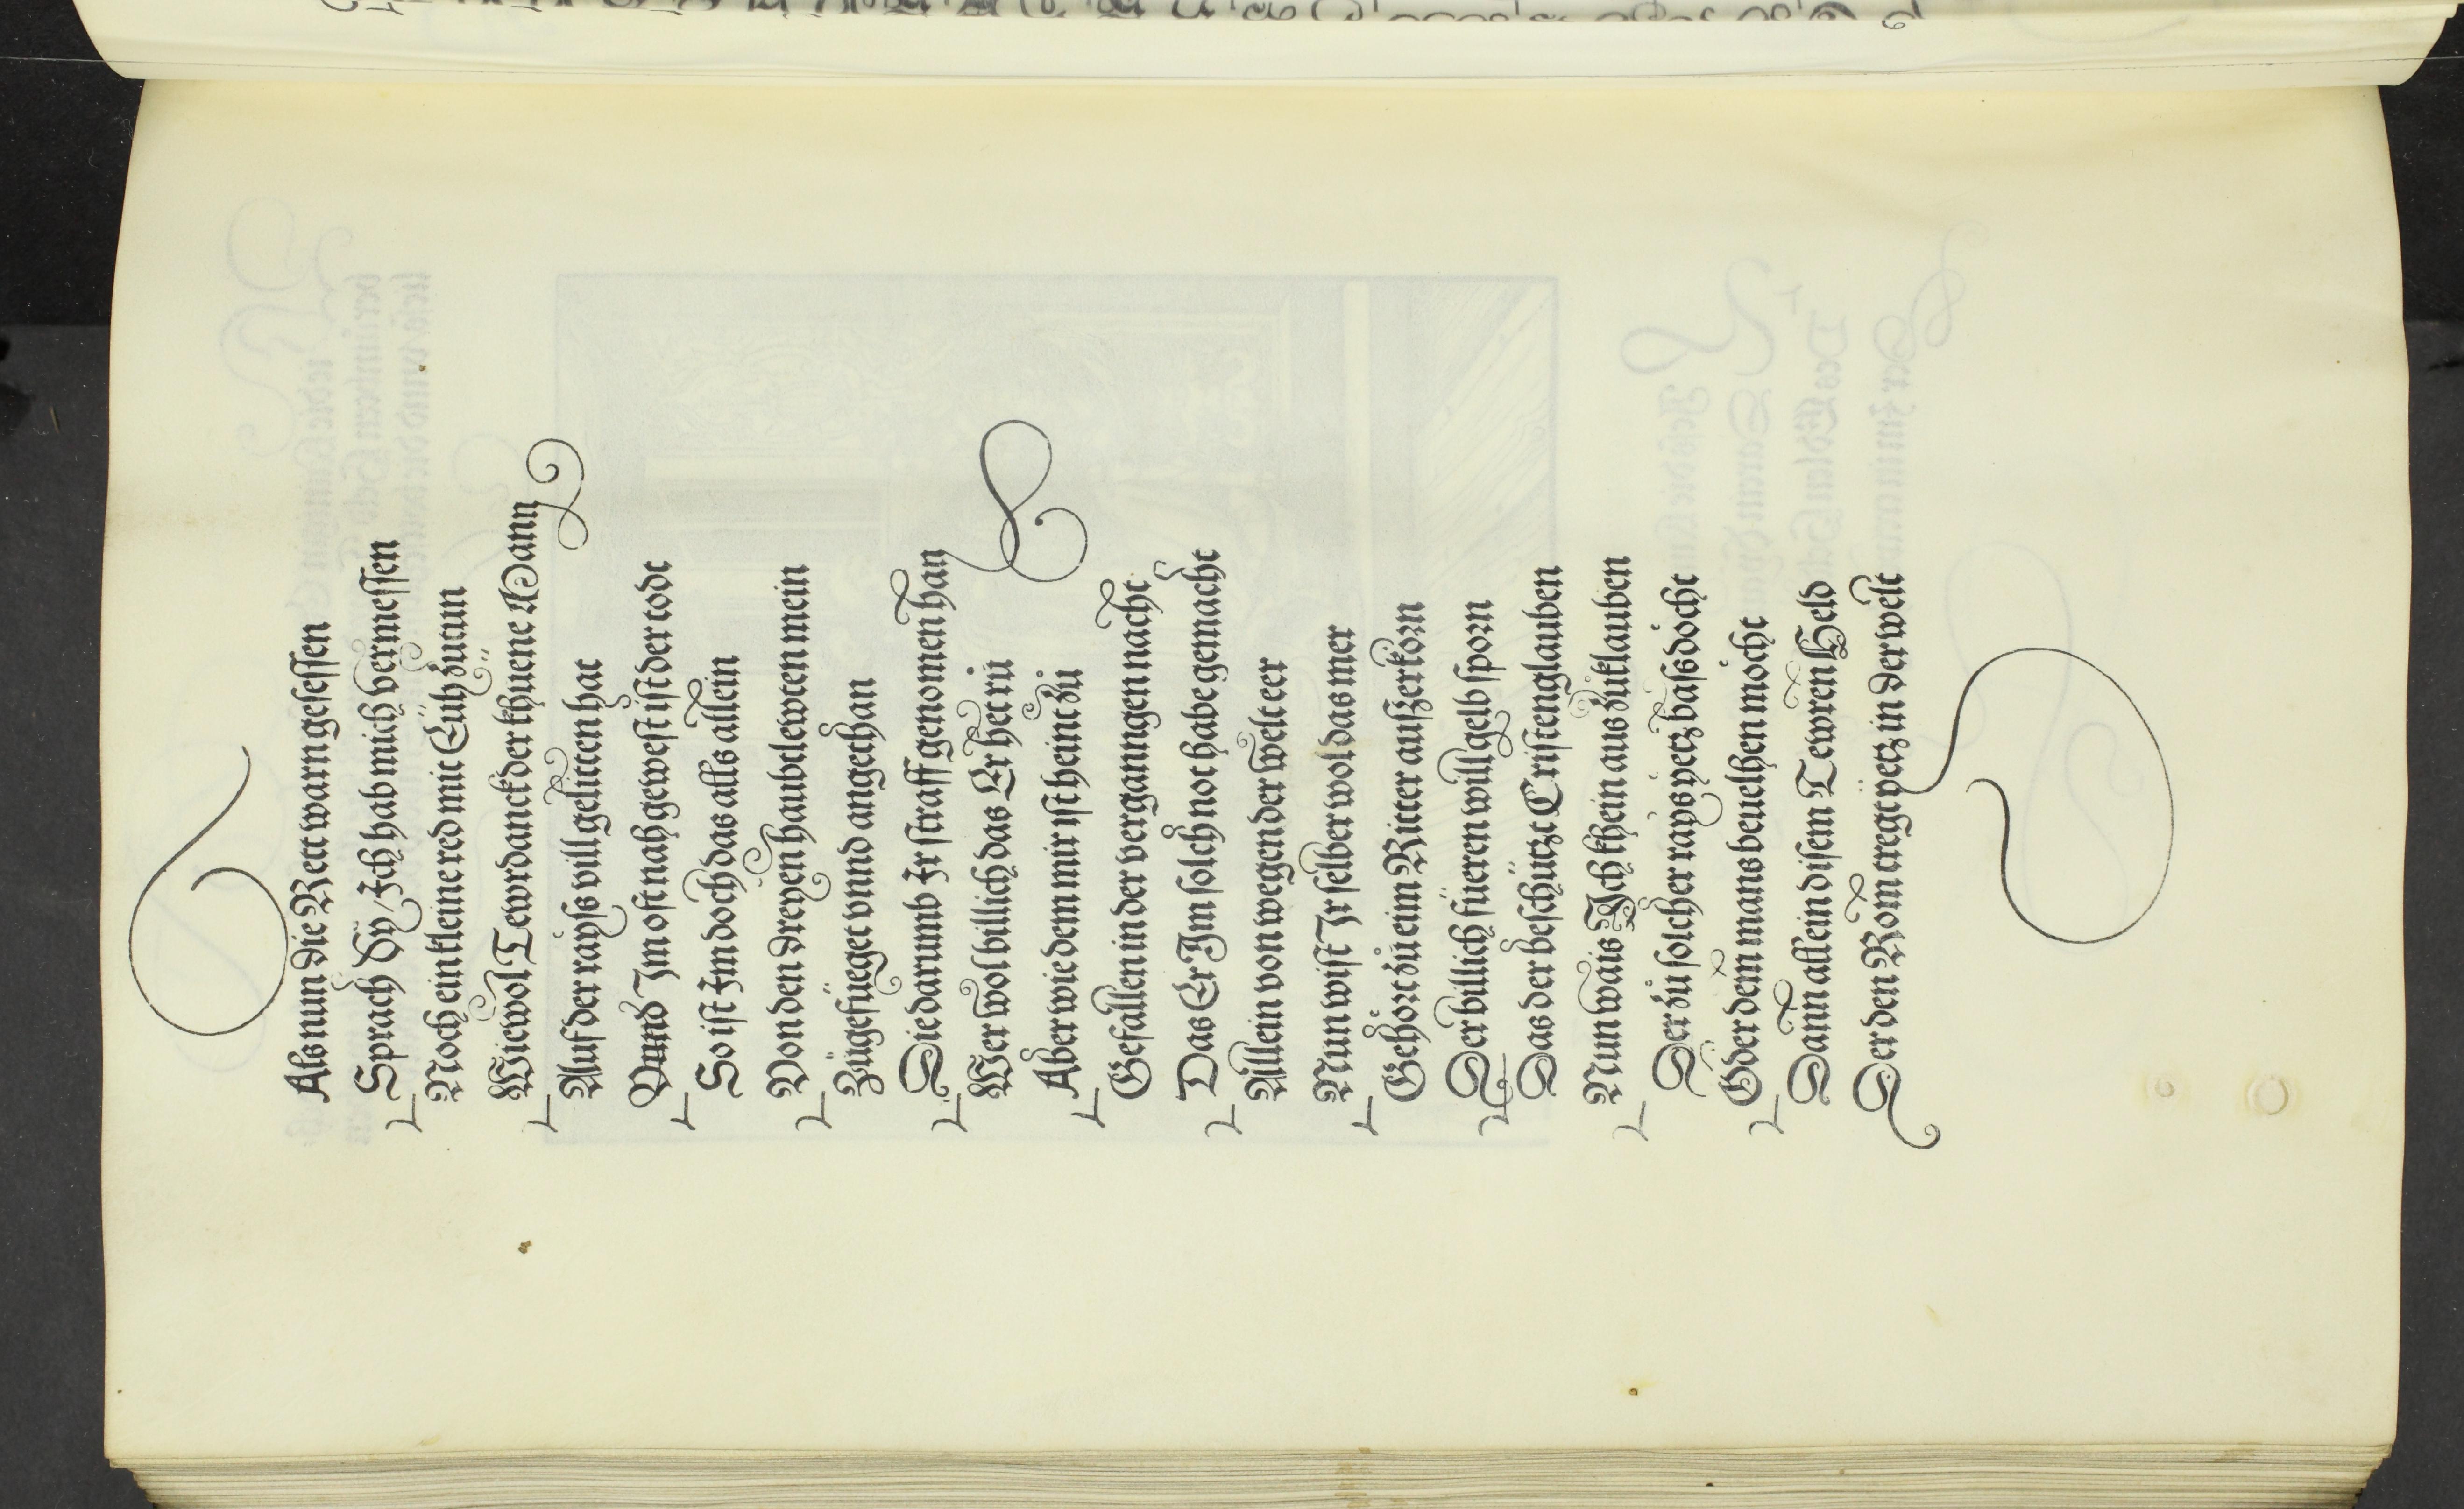 Als nun die Rett warn gesessen
Sprach Sy / Ich hab mich vermessen
Noch ein kleine red mit Eüh zutun
Wiewol Tewrdanck der khuene Mann
Auf der rayß vill gelitten hat
Vnnd Im oft nah gewest ist der todt
So ist Im doch das alls allein
Von den dreyen haubtlewten mein
Zůgefüeget vnnd angethan
Die darumb Ir straff genomen han
Wer wol billich das Er het rů
Aber wie dem mir ist heint zů
Gefallen in der vergangen nacht
Das Er Im solch not habe gemacht
Allein von wegen der welt eer
Nun wist Ir selber wol das mer
Gehort zů eim Ritter auszerkorn
Der billich füeren will gelb sporn
Das der beschützt Cristenglauben
Nun wais Ich khein aus zuklauben
Der zů solcher rays yetz baß döcht
Oder dem mans beuelhen möcht
Dann allein disem Tewren Held
Der den Rom tregt yetz in der welt